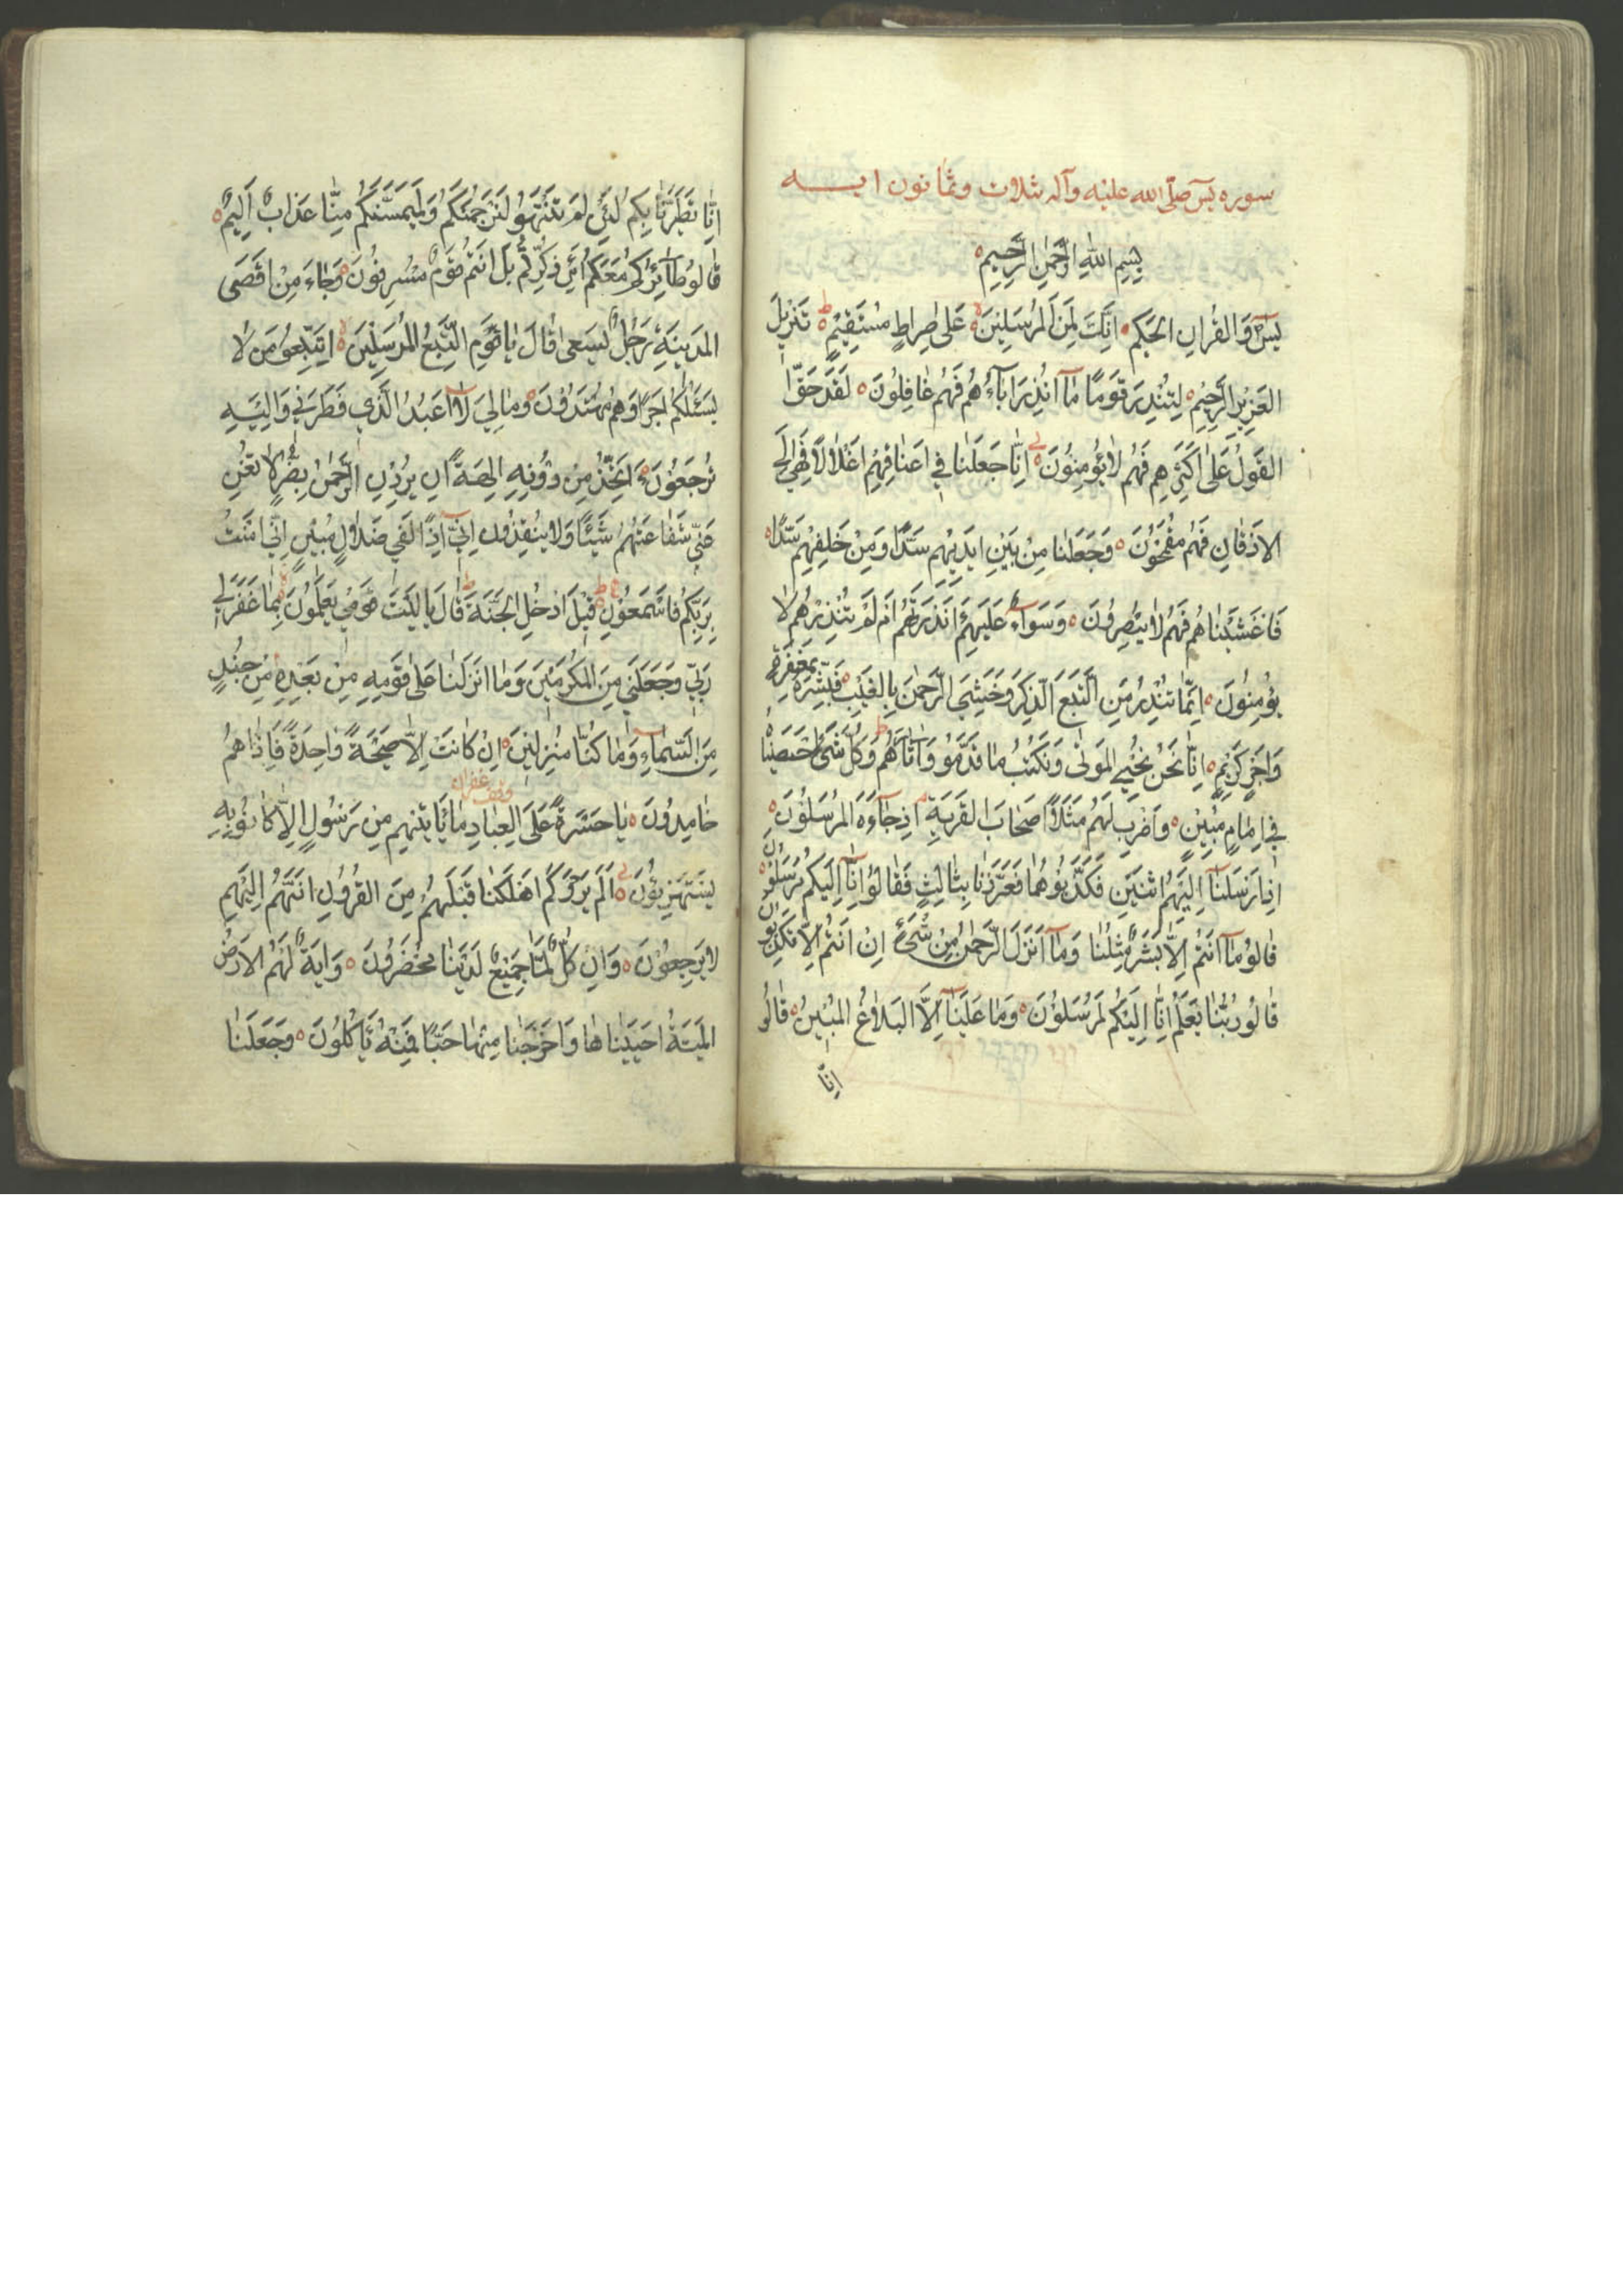 سوره يس صلّى الله عليه وآله ثلاث وثمانون ايه
بِسْمِ اللهِ الرَّحْمٰنِ الرَّحِيمِ
يسٓ وَالقُرانِ الحَكيمِ اِنَّكَ لَمِنَ المُرسَلِينَ عَلىٰ صِراطٍ مُستَقِيمٍ تَنزِيلَ
العَزِيزِ الرَّحِيمِ لِتُنذِرَ قَومًا مٰا اُنذِرَ اٰبآءُهُم فَهُم غٰافِلُونَ لَقَد حَقَّ
القَولُ عَلىٰ اَكثَرِهِم فَهُم لاٰيُؤمِنُونَ اِنّٰا جَعَلنٰا فِي اَعنٰاقِهِم اَغلٰالًا فَهِيَ اِلَى
الاَذقٰانِ فَهُم مُقمَحُونَ وَجَعَلنٰا مِن بَينِ اَيدِيهِم سَدًّا وَمِن خَلفِهِم سَدًّا
فَاَغشَينٰاهُم فَهُم لاٰيُبصِرُونَ وَسَوآءٌ عَلَيهِم ءَاَنذَرتَهُم اَم لَم تُنذِرهُم لاٰ
يُؤمِنُونَ اِنَّمٰا تُنذِرُ مَنِ اتَّبَعَ الذِّكرَ وَخَشِيَ الرَّحمٰنَ بِالغَيبِ فَبَشِّرهُ بِمَغفِرَةٍ
وَاَجرٍ كَرِيمٍ اِنّٰا نَحنُ نُحيِي المَوتىٰ وَنَكتُبُ مٰا قَدَّمُو وَاٰثٰارَهُم وَكُلَّ شَيءٍ اَحصَينٰاهُ
فِي اِمٰامٍ مُبِينٍ وَاضرِب لَهُم مَثَلًا اَصحٰابَ القَريَةِ اِذ جٰآءَهَا المُرسَلُونَ
اِذ اَرسَلنٰا اِلَيهِمُ اثنَينِ فَكَذَّبُوهُمٰا فَعَزَّزنٰا بِثٰالِثٍ فَقٰالُوا اِنّٰا اِلَيكُم مُرسَلُونَ
قٰالُو مٰا اَنتُم اِلّٰا بَشَرٌ مِثلُنٰا وَمٰا اَنزَلَ الرَّحمٰنُ مِن شَيءٍ اِن اَنتُم اِلّٰا تَكذِبُونَ
قٰالُو رَبُّنٰا يَعلَمُ اِنّٰا اِلَيكُم لَمُرسَلُونَ وَمٰا عَلَينٰا اِلَّا البَلاٰغُ المُبِينُ قٰالُو
اِنّٰا
اِنّٰا تَطَيَّرنٰا بِكُم لَئِن لَم تَنتَهُو لَنَرجُمَنَّكُم وَلَيَمَسَّنَّكُم مِنّٰا عَذٰابٌ اَلِيمٌ
قٰالُو طٰآئِرُكُم مَعَكُم اَئِن ذُكِّرتُم بَل اَنتُم قَومٌ مُسرِفُونَ وَجٰاءَ مِن اَقصَى
المَدِينَةِ رَجُلٌ يَسعىٰ قٰالَ يٰاقَومِ اتَّبِعُ المُرسَلِينَ اِتَّبِعُو مَن لاٰ
يَسئَلُكُم اَجرًا وَهُم مُهتَدُونَ وَمٰالِيَ لاٰ اَعبُدُ الَّذِي فَطَرَنِي وَاِلَيهِ
تُرجَعُونَ ءَاَتَّخِذُ مِن دُونِهِ اٰلِهَةً اِن يُرِدنِ الرَّحمٰنُ بِضُرٍّ لاٰتُغنِ
عَنّي شَفٰاعَتُهُم شَيئًا وَلاٰ يُنقِذُونِ اِنّي اِذًا لَفِي ضَلاٰلٍ مُبِينٍ اِنّي اٰمَنتُ
بِرَبِّكُم فَاسمَعُونِ قِيلَ ادخُلِ الجَنَّةَ قٰالَ يٰالَيتَ قَومِي يَعلَمُونَ بِمٰا غَفَرَ لِي
رَبّي وَجَعَلَنِي مِنَ المُكرَمِينَ وَمٰا اَنزَلنٰا عَلىٰ قَومِهِ مِن بَعدِهِ مِن جُندٍ
مِنَ السَّمٰاءِ وَمٰا كُنّٰا مُنزِلِينَ اِن كٰانَت اِلّٰا صَيحَةً وٰاحِدَةً فَاِذٰا هُم
وقف غفران
خٰامِدُونَ يٰاحَسرَةً عَلَى العِبٰادِ مٰا يَأتِيهِم مِن رَسُولٍ اِلّٰا كٰانُو بِهِ
يَستَهزِؤُنَ اَلَم يَرَو كَم اَهلَكنٰا قَبلَهُم مِنَ القُرُونِ اَنَّهُم اِلَيهِم
لاٰيَرجِعُونَ وَاِن كُلٌّ لَمّٰا جَمِيعٌ لَدَينٰا مُحضَرُونَ وَاٰيَةٌ لَهُمُ الاَرضُ
المَيتَةُ اَحيَينٰاهٰا وَاَخرَجنٰا مِنهٰا حَبًّا فَمِنهُ يَأكُلُونَ وَجَعَلنٰا